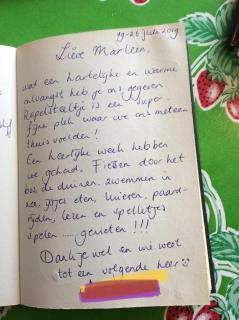 19-26 juli 2019
Lieve Marleen,
wat een hartelijke en warme
ontvangst heb je ons gegeven
Repelsteeltje is een super-
fijne plek waar we ons meteen
thuis voelden!
Een heerlijke week hebben
we gehad. Fietsen door het
bos, de duinen, zwemmen in
zee, ijsjes eten, luieren, paard-
rijden, lezen en spelletjes
spelen ..... genieten !!!
Dankjewel en wie weet
tot een volgende keer